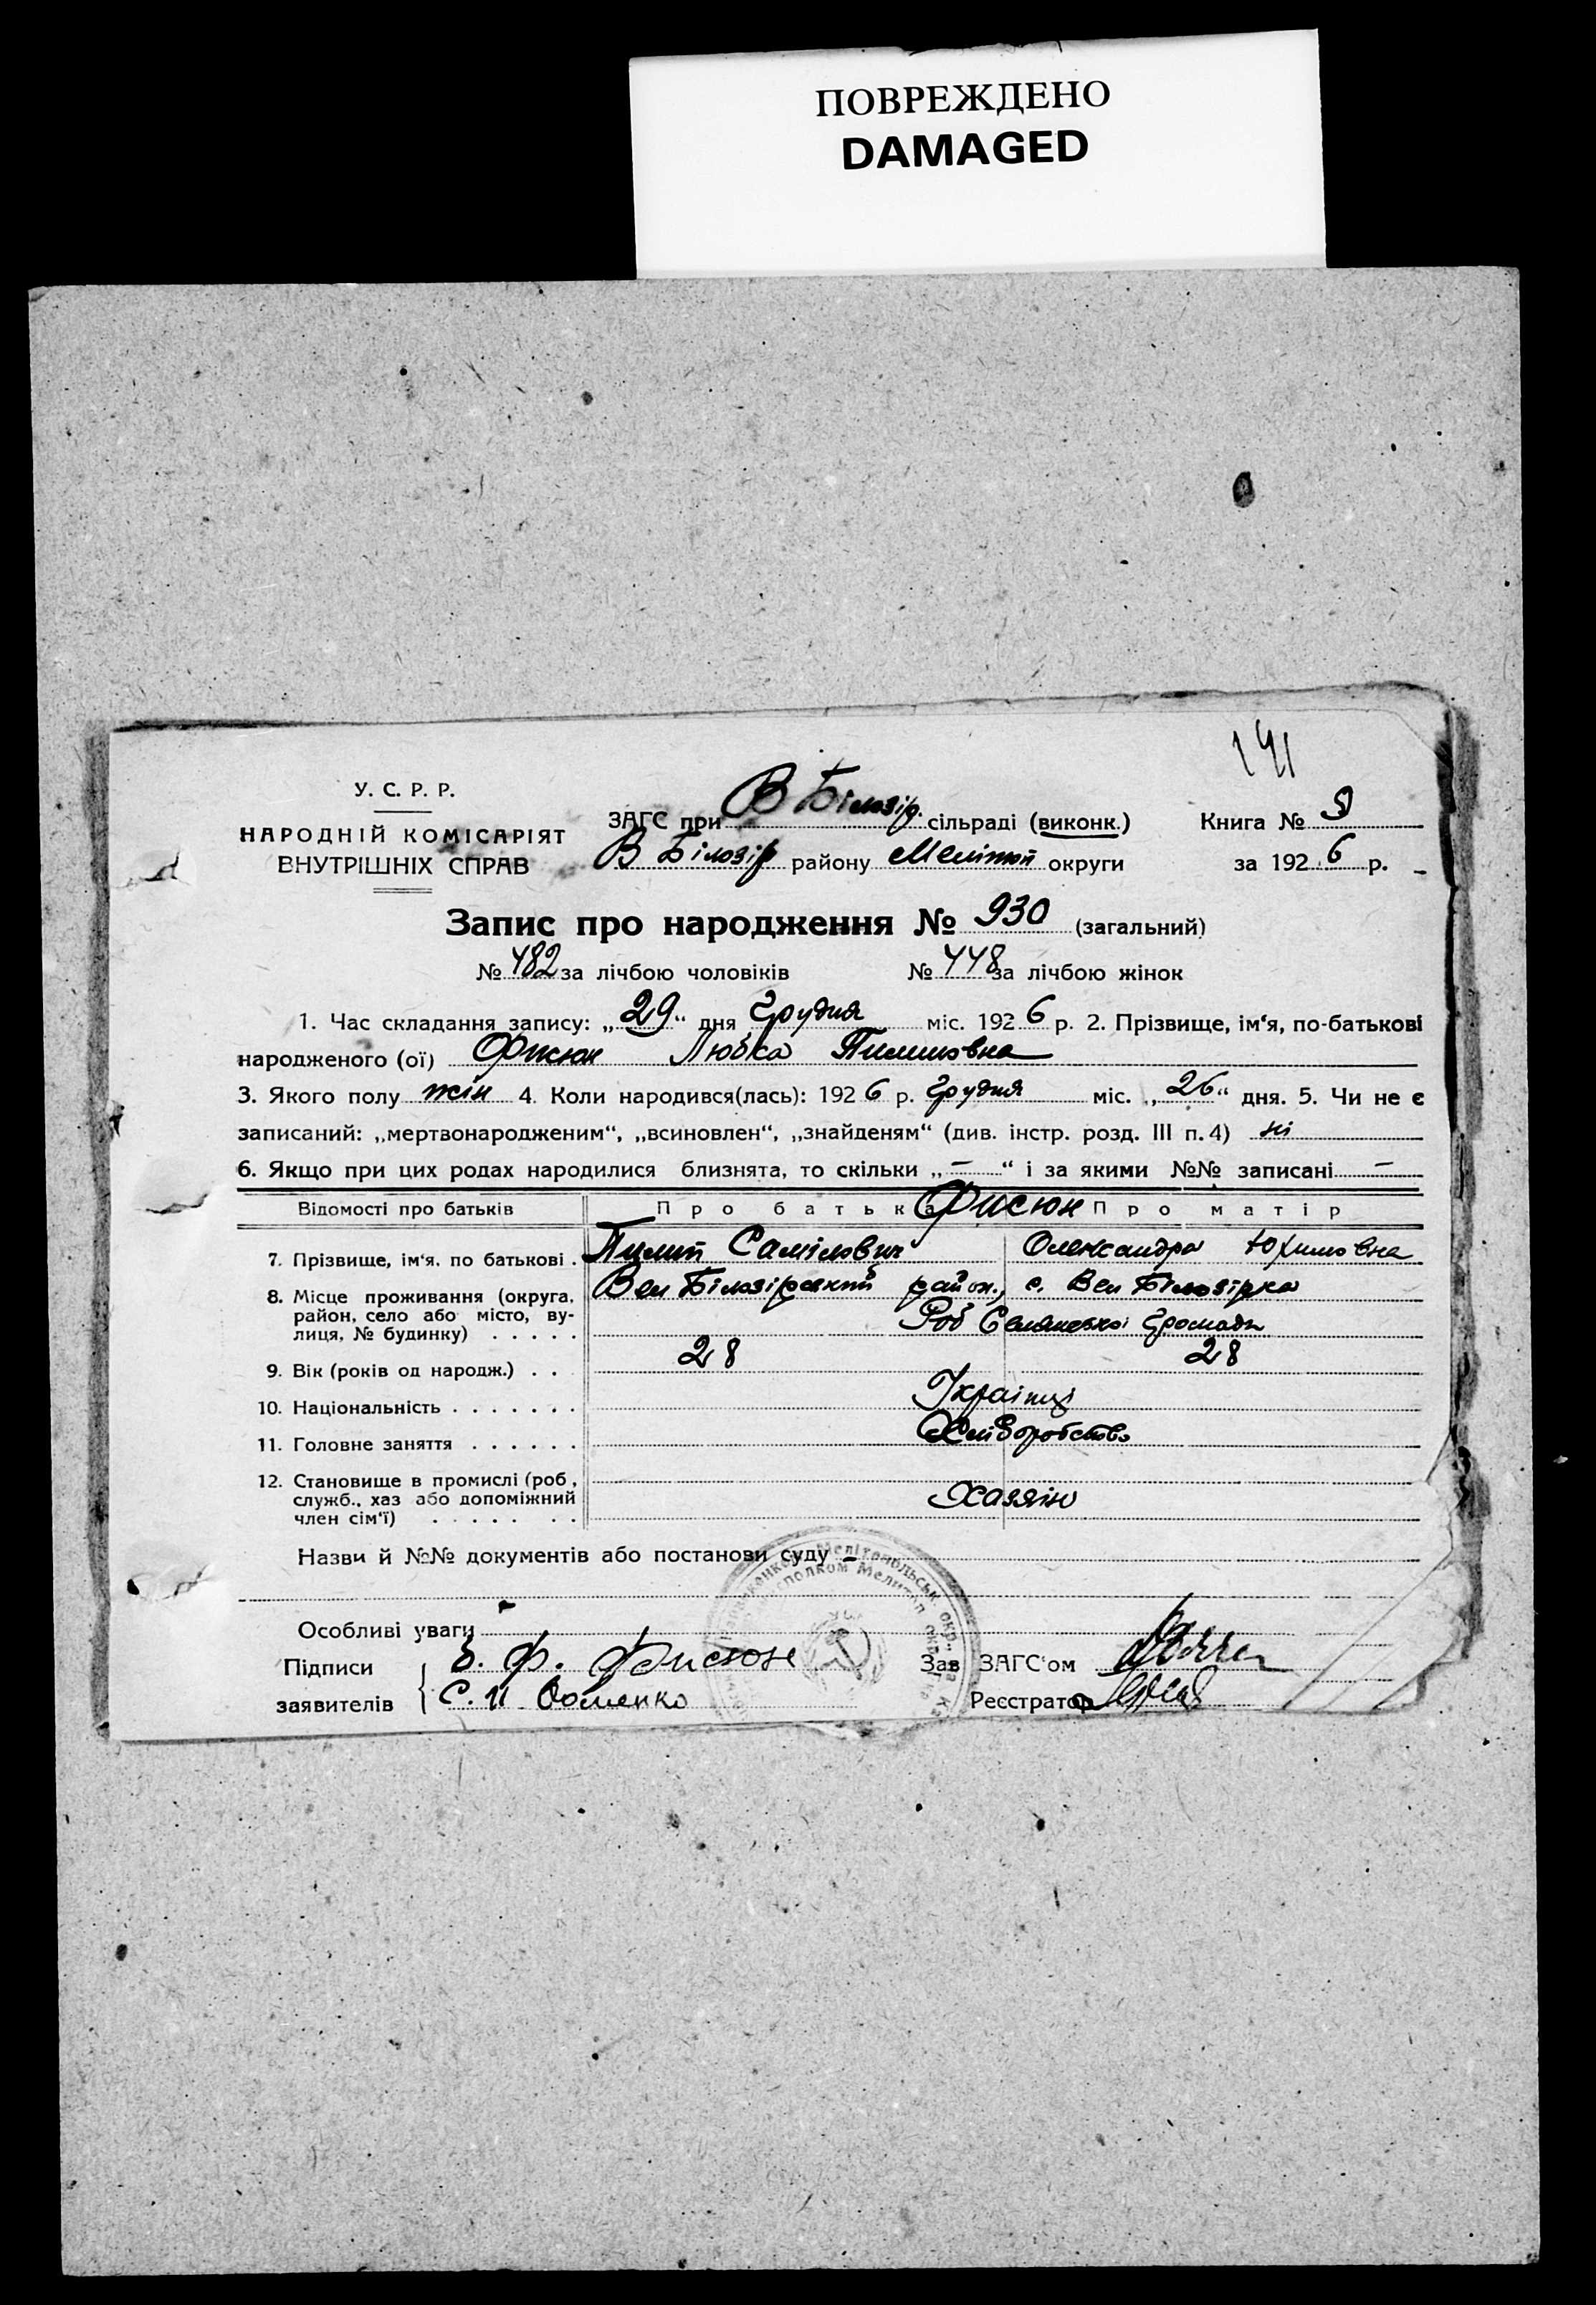 ПОВРЕЖДЕНО
DAMAGED
141
У. С. Р. Р.
НАРОДНІЙ КОМІСАРІЯТ
ВНУТРІШНІХ СПРАВ
ЗАГС при В Білозір. сільраді (виконк.)
В Білозір району Меліт округи
Книга №
за 1926 р.
Запис про народження № 930 (загальний)
№ 482 за лічбою чоловіків № 448 за лічбою жінок
1. Час складання запису: „29“ дня Грудня міс. 1926 р. 2. Прізвище, ім‘я, по-батькові
народженого (ої) Фисюн Любка Пилиповна
3. Якого полу жін 4. Коли народився(лась): 1926 р. Грудня міс. „26“ дня. 5. Чи не є
записаний: „мертвонародженим“, „всиновлен“, „знайденям“ (див. інстр. розд. III п. 4) ні
6. Якщо при цих родах народилися близнята, то скільки „—“ і за якими №№ записані —
Відомості про батьків Про батька Фисюн Про матір
7. Прізвище, ім‘я, по батькові . Пилип Самілович Олександра Юхимовна
8. Місце проживання (округа, район, село або місто, ву-лиця, № будинку) . . . . . Вел Білозірський район., с. Вел Білозірка
Роб Селянської Громади
9. Вік (років од народж.) . . 28 28
10. Національність . . . . . . . Українці
11. Головне заняття . . . . . . Хліборобство
12. Становище в промислі (роб.,
служб., хаз або допоміжний
член сім‘ї) . . . . . . . Хазяїн
Назви й №№ документів або постанови суду —
Особливі уваги
Підписи
заявителів
Ф. Фисюн
С. И
Зав ЗАГС‘ом
Реєстратор